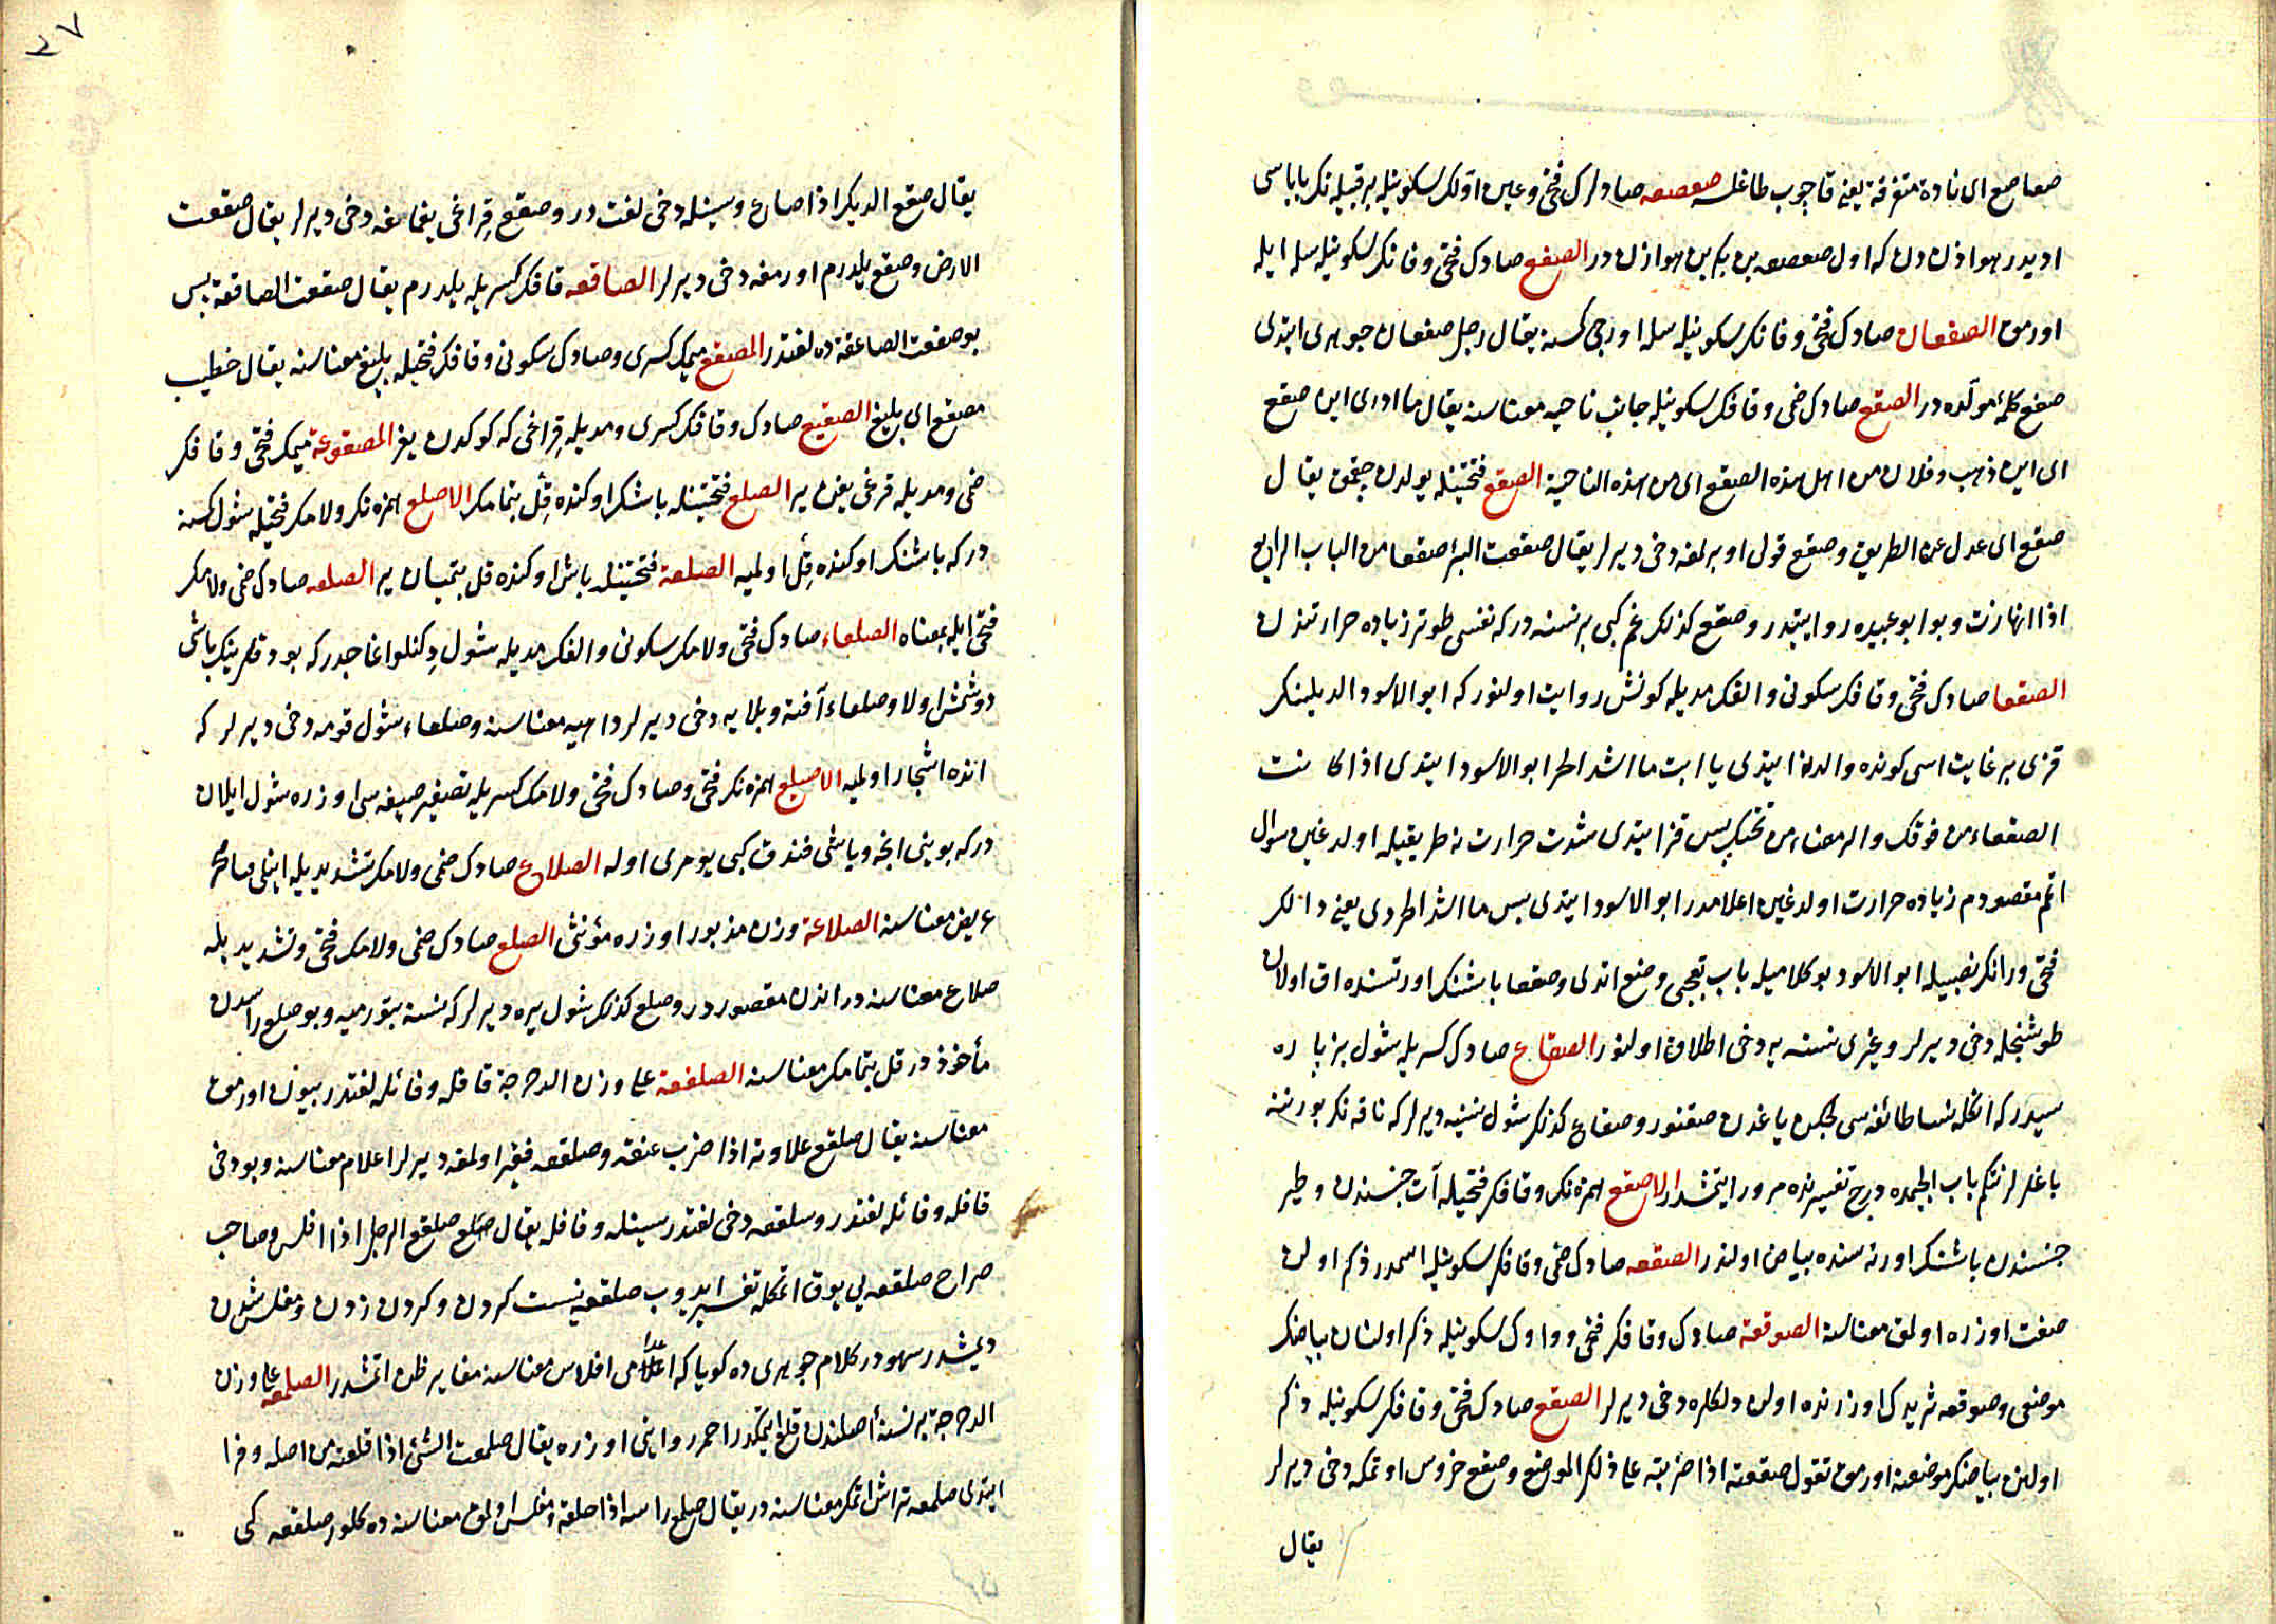 صعاصع اى نادة متفرقة يعنى قاچوب طاغلسه صعصعه صادلرك فتحى وعين اولكى سكونيله بر قبيله نك باباسى
اديدر هوازن دن كه اول صعصعه بن بكر بن هوازن در الصفع صادك فتحى وفانك سكونيله سله ايله
اورمق الصفعان صادك فتحى وفانك سكونيله سله اوريجى كسنه يقال رجل صفعان جوهرى ايتدى
صفع كلمهٔ مولده در الصقع صادك ضمى وقافك سكونيله جانب ناحيه معناسنه يقال ما ادرى اين صقع
اى اين ذهب وفلان من اهل هذه الصقع اى من هذه الناحية الصقع فتحتينله يولدن چقمق يقال
صقع اى عدل عن الطريق وصقع قولى اوبرلمغه دخى ديرلر يقال صقعت البئر صقعا من الباب الرابع
اذا انهارت وبو ابو عبيده روايتيدر وصقع كذلك غم كبى بر نسنه در كه نفسى طوتر زياده حرارتندن
الصقعا صادك فتحى وقافك سكونى والفك مديله كونش روايت اولنور كه ابو الاسود الديلينك
قزى بر غايت اسى كونده والدنه ايتدى يا ابت ما اشد الحر ابو الاسود ايتدى اذا كانت
الصقعاء من فوقك والرمضاء من تحتك پس قز ايتدى شدت حرارت نه طريقيله اولدغين سوال
اتمم مقصودم زياده حرارت اولدغين اعلامدر ابو الاسود ايتدى پس ما اشد الحر دى يعنى دالك
فتحى ورانك نصبيله ابو الاسود بو كلاميله باب تعجبى وضع اتدى وصقعا باشنك اورتسنده اق اولان
طوشنجله دخى ديرلر وغيرى نسنه يه دخى اطلاق اولنور الصقاع صادك كسريله شول بز پاره
سيدر كه انكله نسا طائفه سى لچكن ياغدن صقنور وصقاع كذلك شول نسنيه ديرلر كه ناقه نك بورننه
باغلرلر نتكم باب الجيمده درج تفسيرنده مرور ايتمشدر الاصقع همزه نك وقافك فتحيله آت جنسندن وطير
جنسندن باشنك اورته سنده بياض اولندر الصقعه صادك ضمى وقافك سكونيله اسمدر ذكر اولن
صفت اوزره اولمق معناسنه الصوقعة صادك وقافك فتحى وواوك سكونيله ذكر اولنان بياضك
موضعى وصوقعه ثريدك اوزرنده اولن دلكلره دخى ديرلر الصقع صادك فتحى وقافك سكونيله ذكر
اولن بياضك موضعنه اورمق تقول صقعته اذا ضربته على ذلك الموضع وصقع خروس اوتمكه دخى ديرلر
يقال
٢٧
يقال صقع الديك اذا صاح وسينله دخى لغت در وصقع قراغى يغماغه دخى ديرلر يقال صقعت
الارض وصقع يلدرم اورمغه دخى ديرلر الصاقعه قافك كسريله يلدرم يقال صقعت الصاقعة پس
بو صقعت الصاعقه ده لغتدر المصقع ميمك كسرى وصادك سكونى وقافك فتحيله بليغ معناسنه يقال خطيب
مصقع اى بليغ الصقيع صادك وقافك كسرى ومديله قراغى كه كوكدن يغر المصقوعة ميمك فتحى وقافك
ضمى ومديله قرغى يغن ير الصلع فتحتينله باشك اوكنده قل بتمامك الاصلع همزه نك ولامك فتحيله شول كسنه
در كه باشنك اوكنده قل اولميه الصلعة فتحتينله باش اوكنده قل بتميان ير الصلعه صادك ضمى ولامك
فتحى ايله بمعناه الصلعاء صادك فتحى ولامك سكونى والفك مديله شول دكنلو اغاجدر كه بودقلرينك باشى
دوشمش اولا وصلعاء آفته وبلايه دخى ديرلر داهيه معناسنه وصلعاء شول قومه دخى ديرلر كه
انده اشجار اولميه الاصيلع همزه نك فتحى وصادك فتحى ولامك كسريله تصغير صيغه سى اوزره شول ايلان
در كه بوينى انجه وباشى فندق كبى يومرى اوله الصلاع صادك ضمى ولامك تشديديله اينلى طاش
عريض معناسنه الصلاعة وزن مذبور اوزره مؤنثى الصلع صادك ضمى ولامك فتحى وتشديديله
صلاع معناسنه در اندن مقصور در وصلع كذلك شول يره ديرلر كه نسنه بتورميه وبو صلع راسدن
مأخوذ در قل بتمامك معناسنه الصلفعة على وزن الدحرجة قافله وفائله لغتدر بيون اورمق
معناسنه يقال صلقع علاوته اذا ضرب عنقه وصلقعه فقير اولمغه ديرلر اعلام معناسنه وبو دخى
قافله وفائله لغتدر وسلقعه دخى لغتدر سينله وقافله يقال صلع صلقع الرجل اذا افلس وصاحب
صراح صلقعه يى يوق اتمكله تفسير ايدوب صلقعه نيست كردن وكردن زدن ومفلس شدن
ديمشدر سهودر كلام جوهرى ده كويا كه اعلامى افلاس معناسنه مغاير ظن اتمشدر الصلمعه على وزن
الدحرجة بر نسنه أصلندن قلع ايتمكدر احمر روايتى اوزره يقال صلمعت الشئ اذا قلعته من اصله وفرا
ايتدى صلمعه تراش اتمك معناسنه در يقال صلمع راسه اذا حلقه ومفلس اولمق معناسنه ده كلور صلقعه كبى